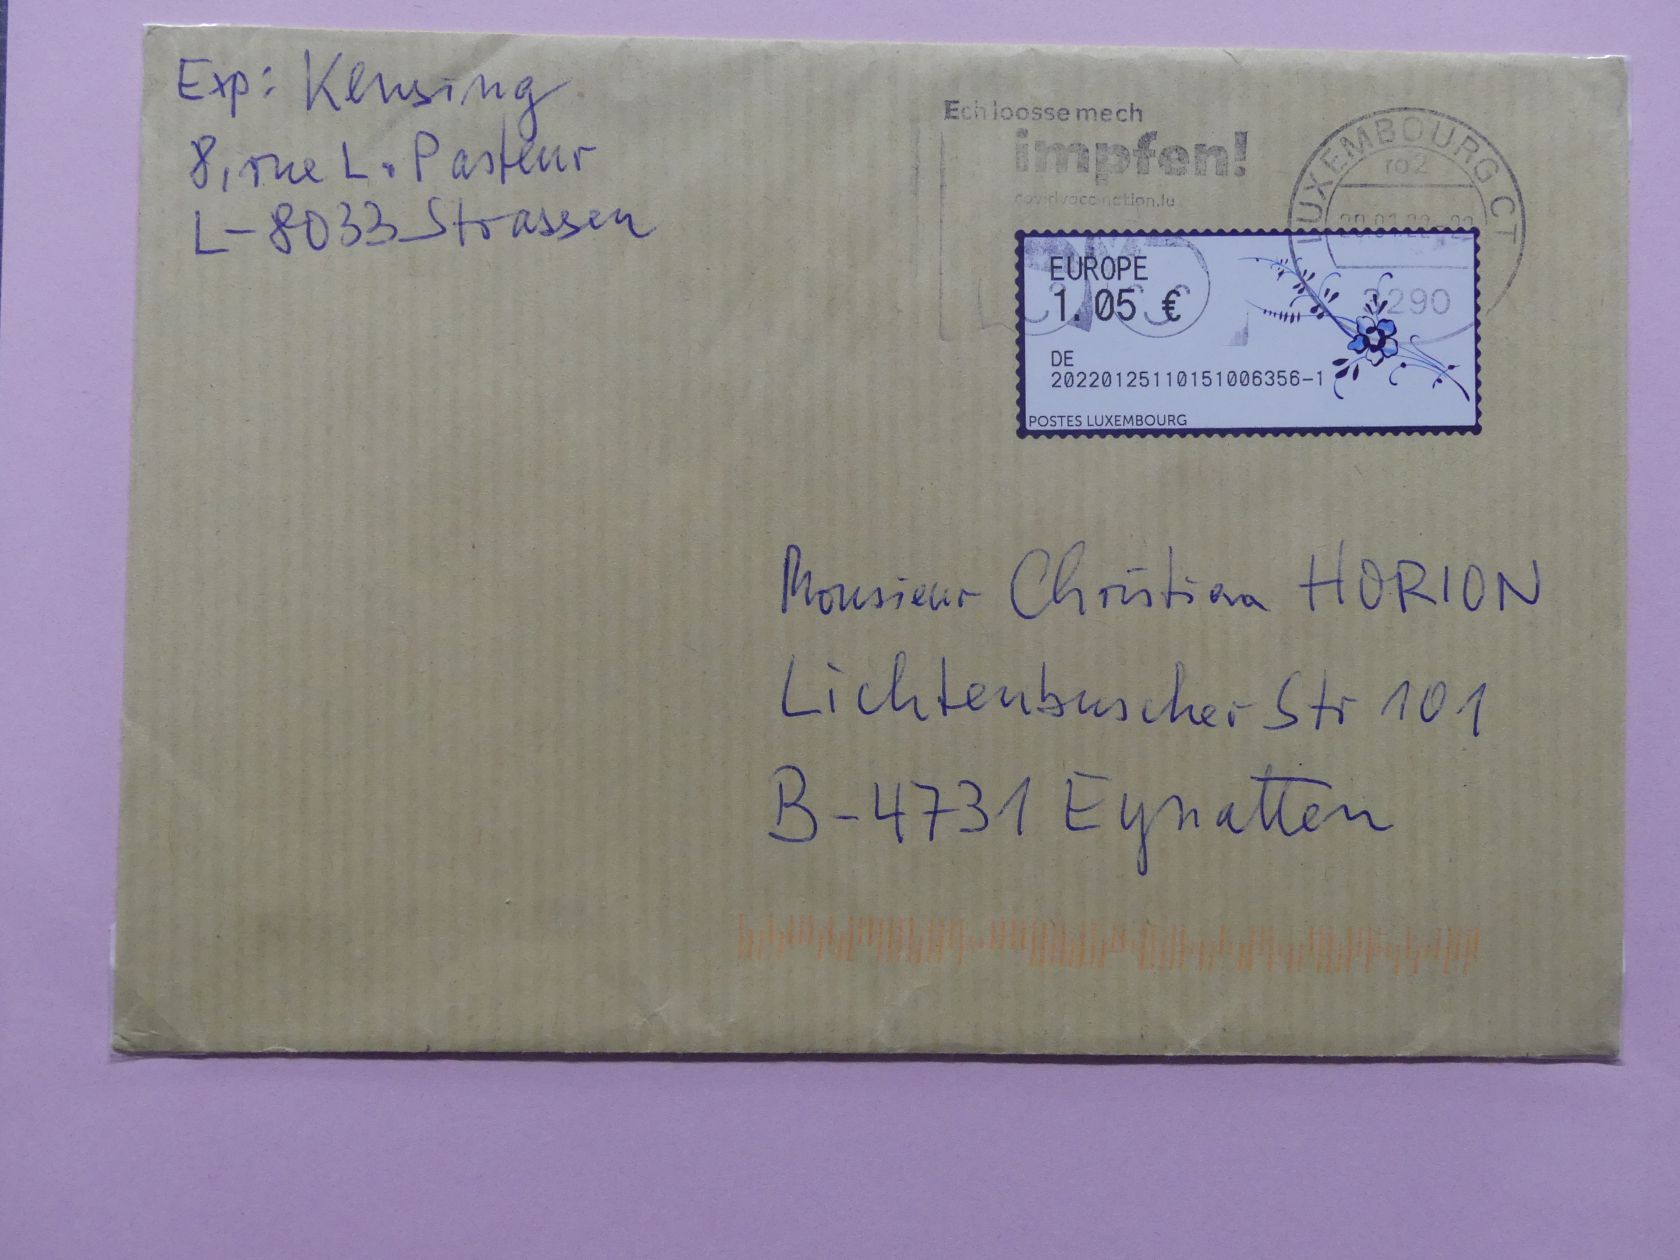 Exp: Kensing
8, rue L. Pasteur
L-8033 Strassen
Ech loosse mech
impfen!
covidvaccination.lu
LUXEMBOURG CT
ro2
EUROPE
1.05 €
DE
20220125110151006356-1
POSTES LUXEMBOURG
Monsieur Christian HORION
Lichtenbuscher Str 101
B-4731 Eynatten